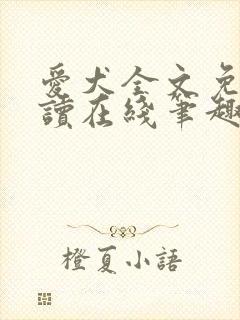 愛犬全文免
讀在綫筆趣
橙夏小語